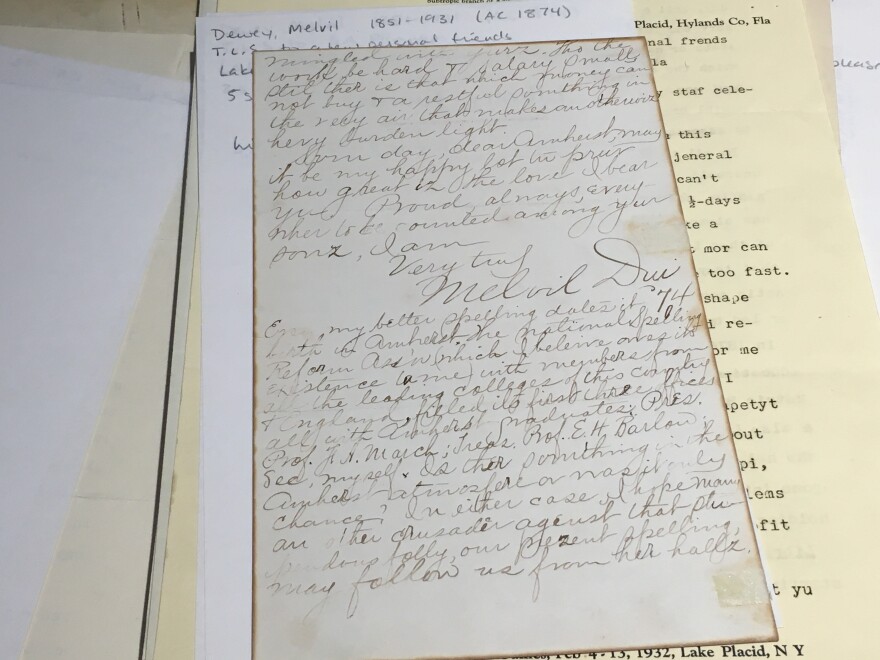 Dewey, Melvil 1851-1931 (AC 1874)
T.L.S. to personal friends
Lak
5 s
mingled
work be hard & salary small
stil ther is that which money can
not buy & a restful somthing in
the very air that makes an otherwiz
hevy burden light.
Som day, dear Amherst, may
it be my happy lot to pruv
how great iz the love I bear
yu. Proud, always, every-
wher to be counted among yur
sonz, I am
Very truly
Melvil Dui
'74
my better spelling dates its
birth in Amherst. The national Spelling
Reform Ass'n (which I beleive owes its
existence to me) with members from
all the leading colleges of this country
& England, filled its first three offices
all with Amherst graduates: Pres.
Prof. F. A. March; Treas. Prof. E. H. Barlow;
Sec, myself. Is ther somthing in the
Amherst atmosfere or was it only
chance? In either case I hope many
an other crusader against that stu-
pendous folly, our prezent spelling,
may follow us from her hallz.
Placid, Hylands Co, Fla
nal frends
la
pleasr
y staf cele-
this
jeneral
can't
½-days
ke a
mor can
too fast.
shape
i re-
or me
I
petyt
out
pi,
lems
fit
t yu
Feb 4-13, 1932, Lake Placid, N Y